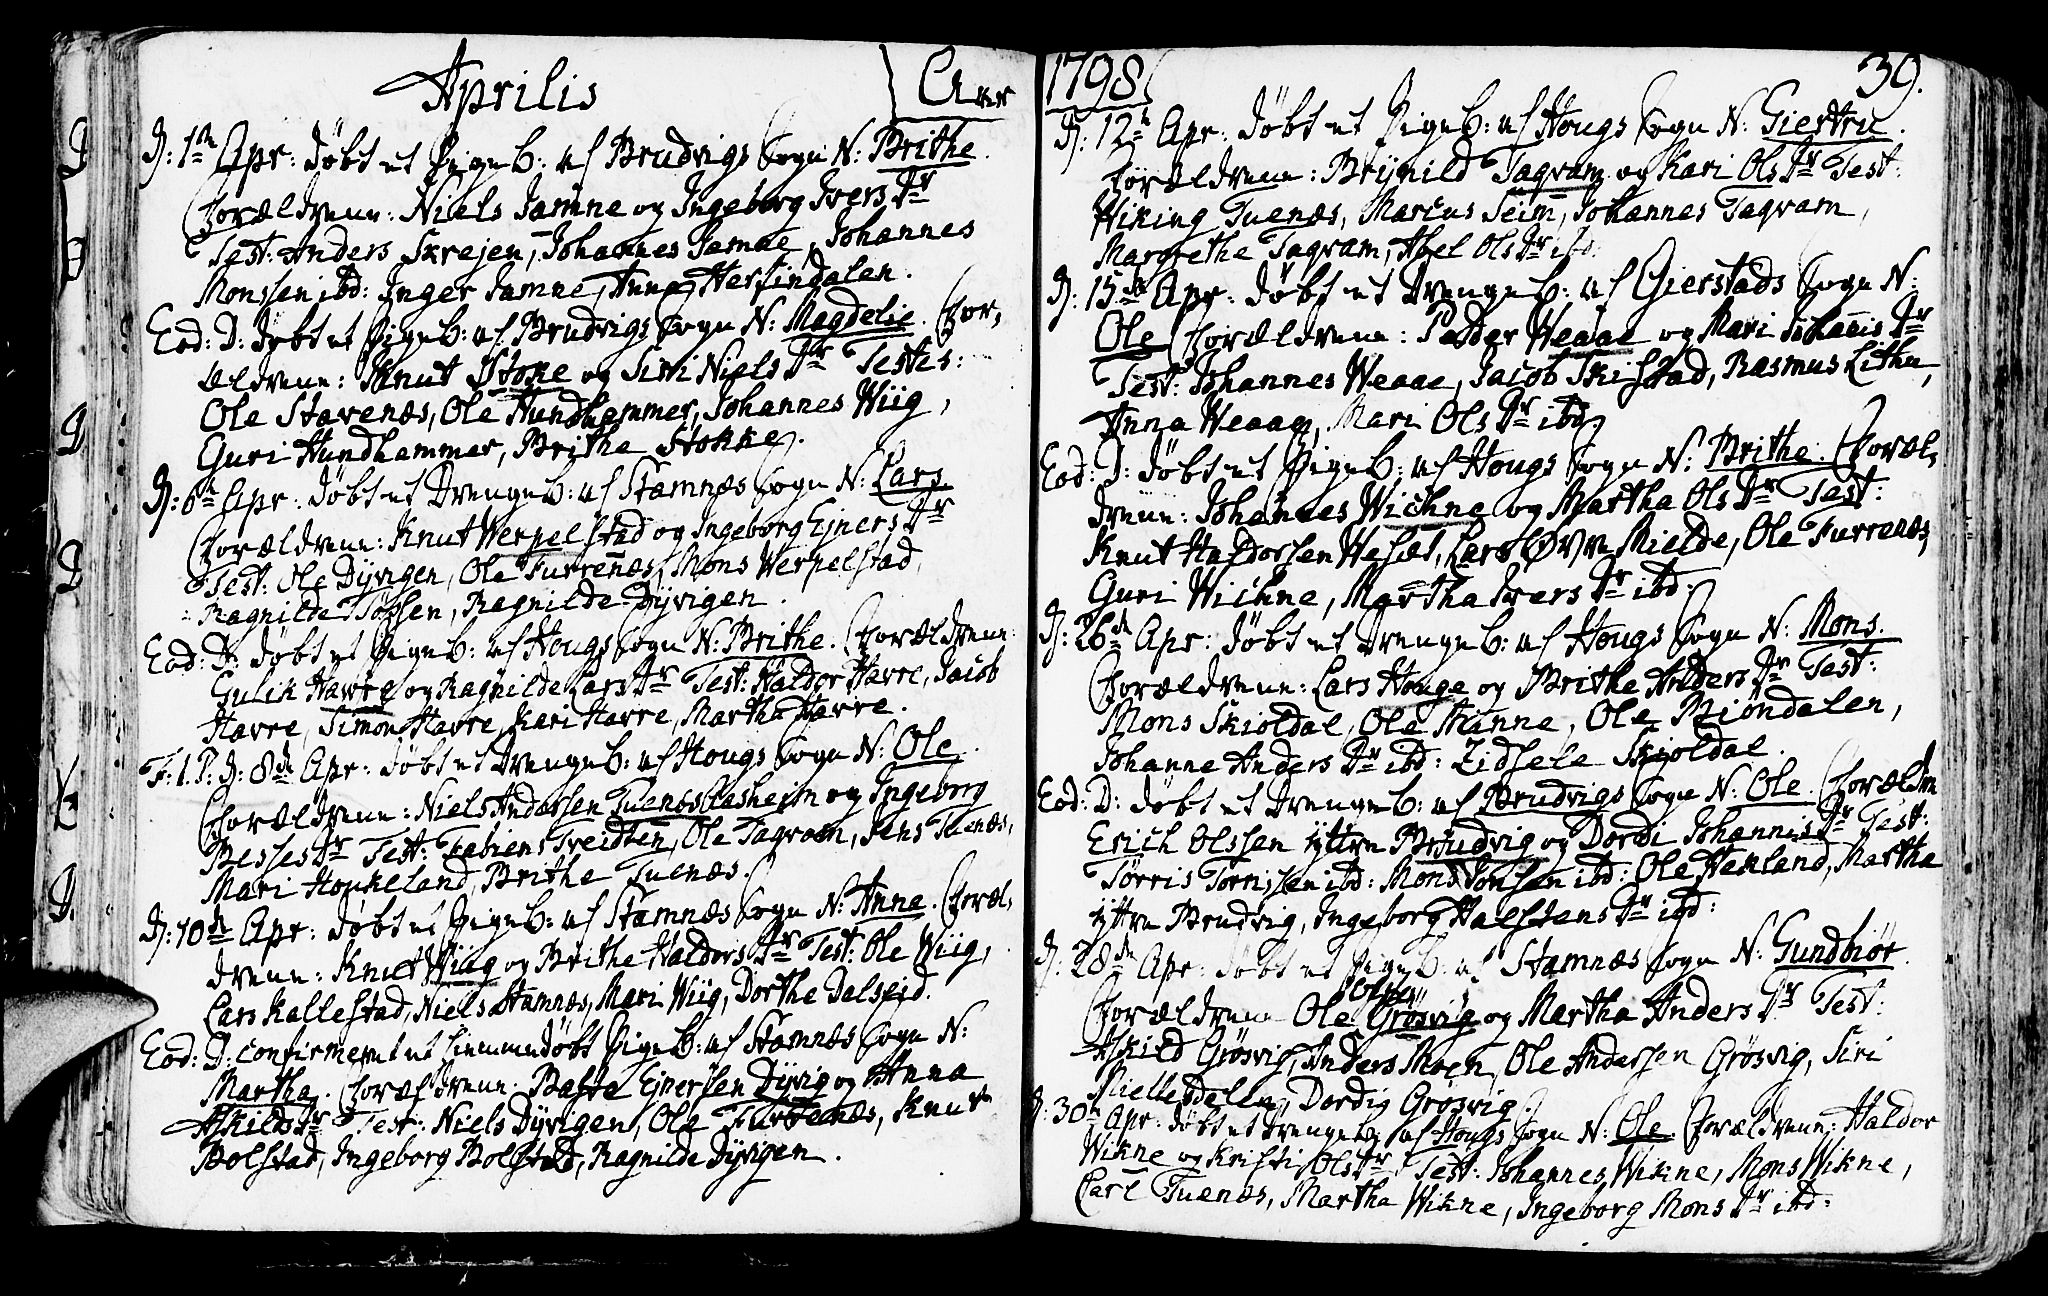 Aprilis
D: 1te Apr: døbt et Pigeb: af Brudvigs Sogn N: Brithe.
Forældrene: Niels Jamne og Ingeborg Ivers Dr
Test: Anders Skrejen, Johannes Jamne, Johannes
Monssen ibd: Inger Jamne, Anna Herfindalen.
Eod: D: døbt et Pigeb: af Brudvigs Sogn N: Magdelie. For,
ældrene: Knut Stoke og Siri Niels Dr Testes:
Ole Stavenæs, Ole Hundhammer, Johannes Wiig,
Guri Hundhammer, Brithe Stokke.
D: 6te Apr: døbt et Drengeb: af Stamnæs Sogn N: Lars.
Forældrene: Knut Werpelstad og Ingeborg Ejners Dr
Test: Ole Dyvigen, Ole Furrenæs, Mons Werpelstad,
Ragnilde Tøssen, Ragnilde Dyvigen.
Eod: D: døbt et Pigeb: af Hougs Sogn N: Brithe. Forældrene:
Gulik Havre og Ragnilde Lars Dr Test: Haldor Havre, Jacob
Havre, Simon Havre, Kari Havre, Martha Havre.
F: 1. P: D: 8de Apr: døbt et Drengeb: af Hougs Sogn N: Ole.
Forældrene: Niels Anderssen Tuenæs Casheim og Ingeborg
Besses Dr Test: Fabiens Treidten, Ole Tagvam, Jens Tuenæs,
Mari Houkeland, Brithe Tuenæs.
D: 10de Apr: døbt et Pigeb: af Stamnæs Sogn N: Anne. Foræl,
drene: Knut Wiig og Brithe Haldors Dr Test: Ole Wiig,
Lars Kallestad, Niels Stamnæs, Mari Wiig, Dorthe Dalseid.
Eod: D: confirmeret et hiemmedøbt Pigeb: af Stamnæs Sogn N:
Martha. Forældrene: Baste Ejnersen Dyvig og Anna
Askilds Dr Test: Niels Dyvigen, Ole Furrenæs, Knut
Bolstad, Ingeborg Bolstad, Ragnilde Dyvigen.
1798
39.
D: 12te Apr: døbt et Pigeb: af Hougs Sogn N: Giertru.
Forældrene: Brynild Tagvam og Kari Ols Dr Test:
Wiking Tuenæs, Marcus Seim, Johannes Tagvam,
Margrethe Tagvam, Abel Ols Dr ibd:
D: 15de Apr: døbt et Drengeb: af Gierstads Sogn N:
Ole Forældrene: Peder Weaae og Mari Johannis Dr
Test: Johannes Weaae, Jacob Skifstad, Rasmus Lithu,
Anna Weaae, Mari Ols Dr ibd:
Eod: D: døbt et Pigeb: af Hougs Sogn N: Brithe. Foræl,
drene: Johannes Wichne og Martha Ols Dr Test:
Knut Haldorssen Hesæt, Lars Øvre Mielde, Ole Furrenæs,
Guri Wichne, Martha Ivers Dr ibd:
D: 26de Apr: døbt et Drengeb: af Hougs Sogn N: Mons.
Forældrene: Lars Houge og Brithe Anders Dr Test:
Mons Skioldal, Ole Minne, Ole Biøndalen,
Johanne Anders Dr ibd: Zidsele Skioldal.
Eod: D: døbt et Drengeb: af Brudvigs Sogn N: Ole. Forældre
Erich Olssen ytre Brudvig og Dordi Johannis Dr Test:
Tørris Tørrissen ibd: Mons Monsen ibd: Ole Henland, Martha
ytre Brudvig, Ingeborg Halstens Dr ibd:
D: 28de Apr: døbt et Pigeb: af Stamnæs Sogn N: Gundbiør.
Forældrene Ole Grøsvig og Martha Anders Dr Test:
Askild Grøsvig, Anders Moen, Ole Anderssen Grøsvig, Siri
Miellesdelen, Dordig Grøsvig.
D: 30te Apr: døbt et Drengeb: af Hougs Sogn N: Ole. Forældrene: Haldor
Wikne og Kristi Ols Dr Test: Johannes Wikne, Mons Wikne,
Carl Tuenæs, Martha Wikne, Ingeborg Mons Dr ibd: